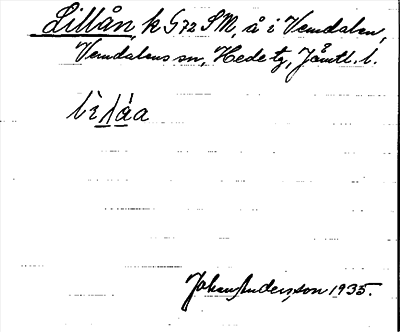 Lillån, k G72 SM, å i Vemdalen,
Vemdalens sn, Hede tg, Jämtl. l.
lìláa
Johan Andersson 1935.